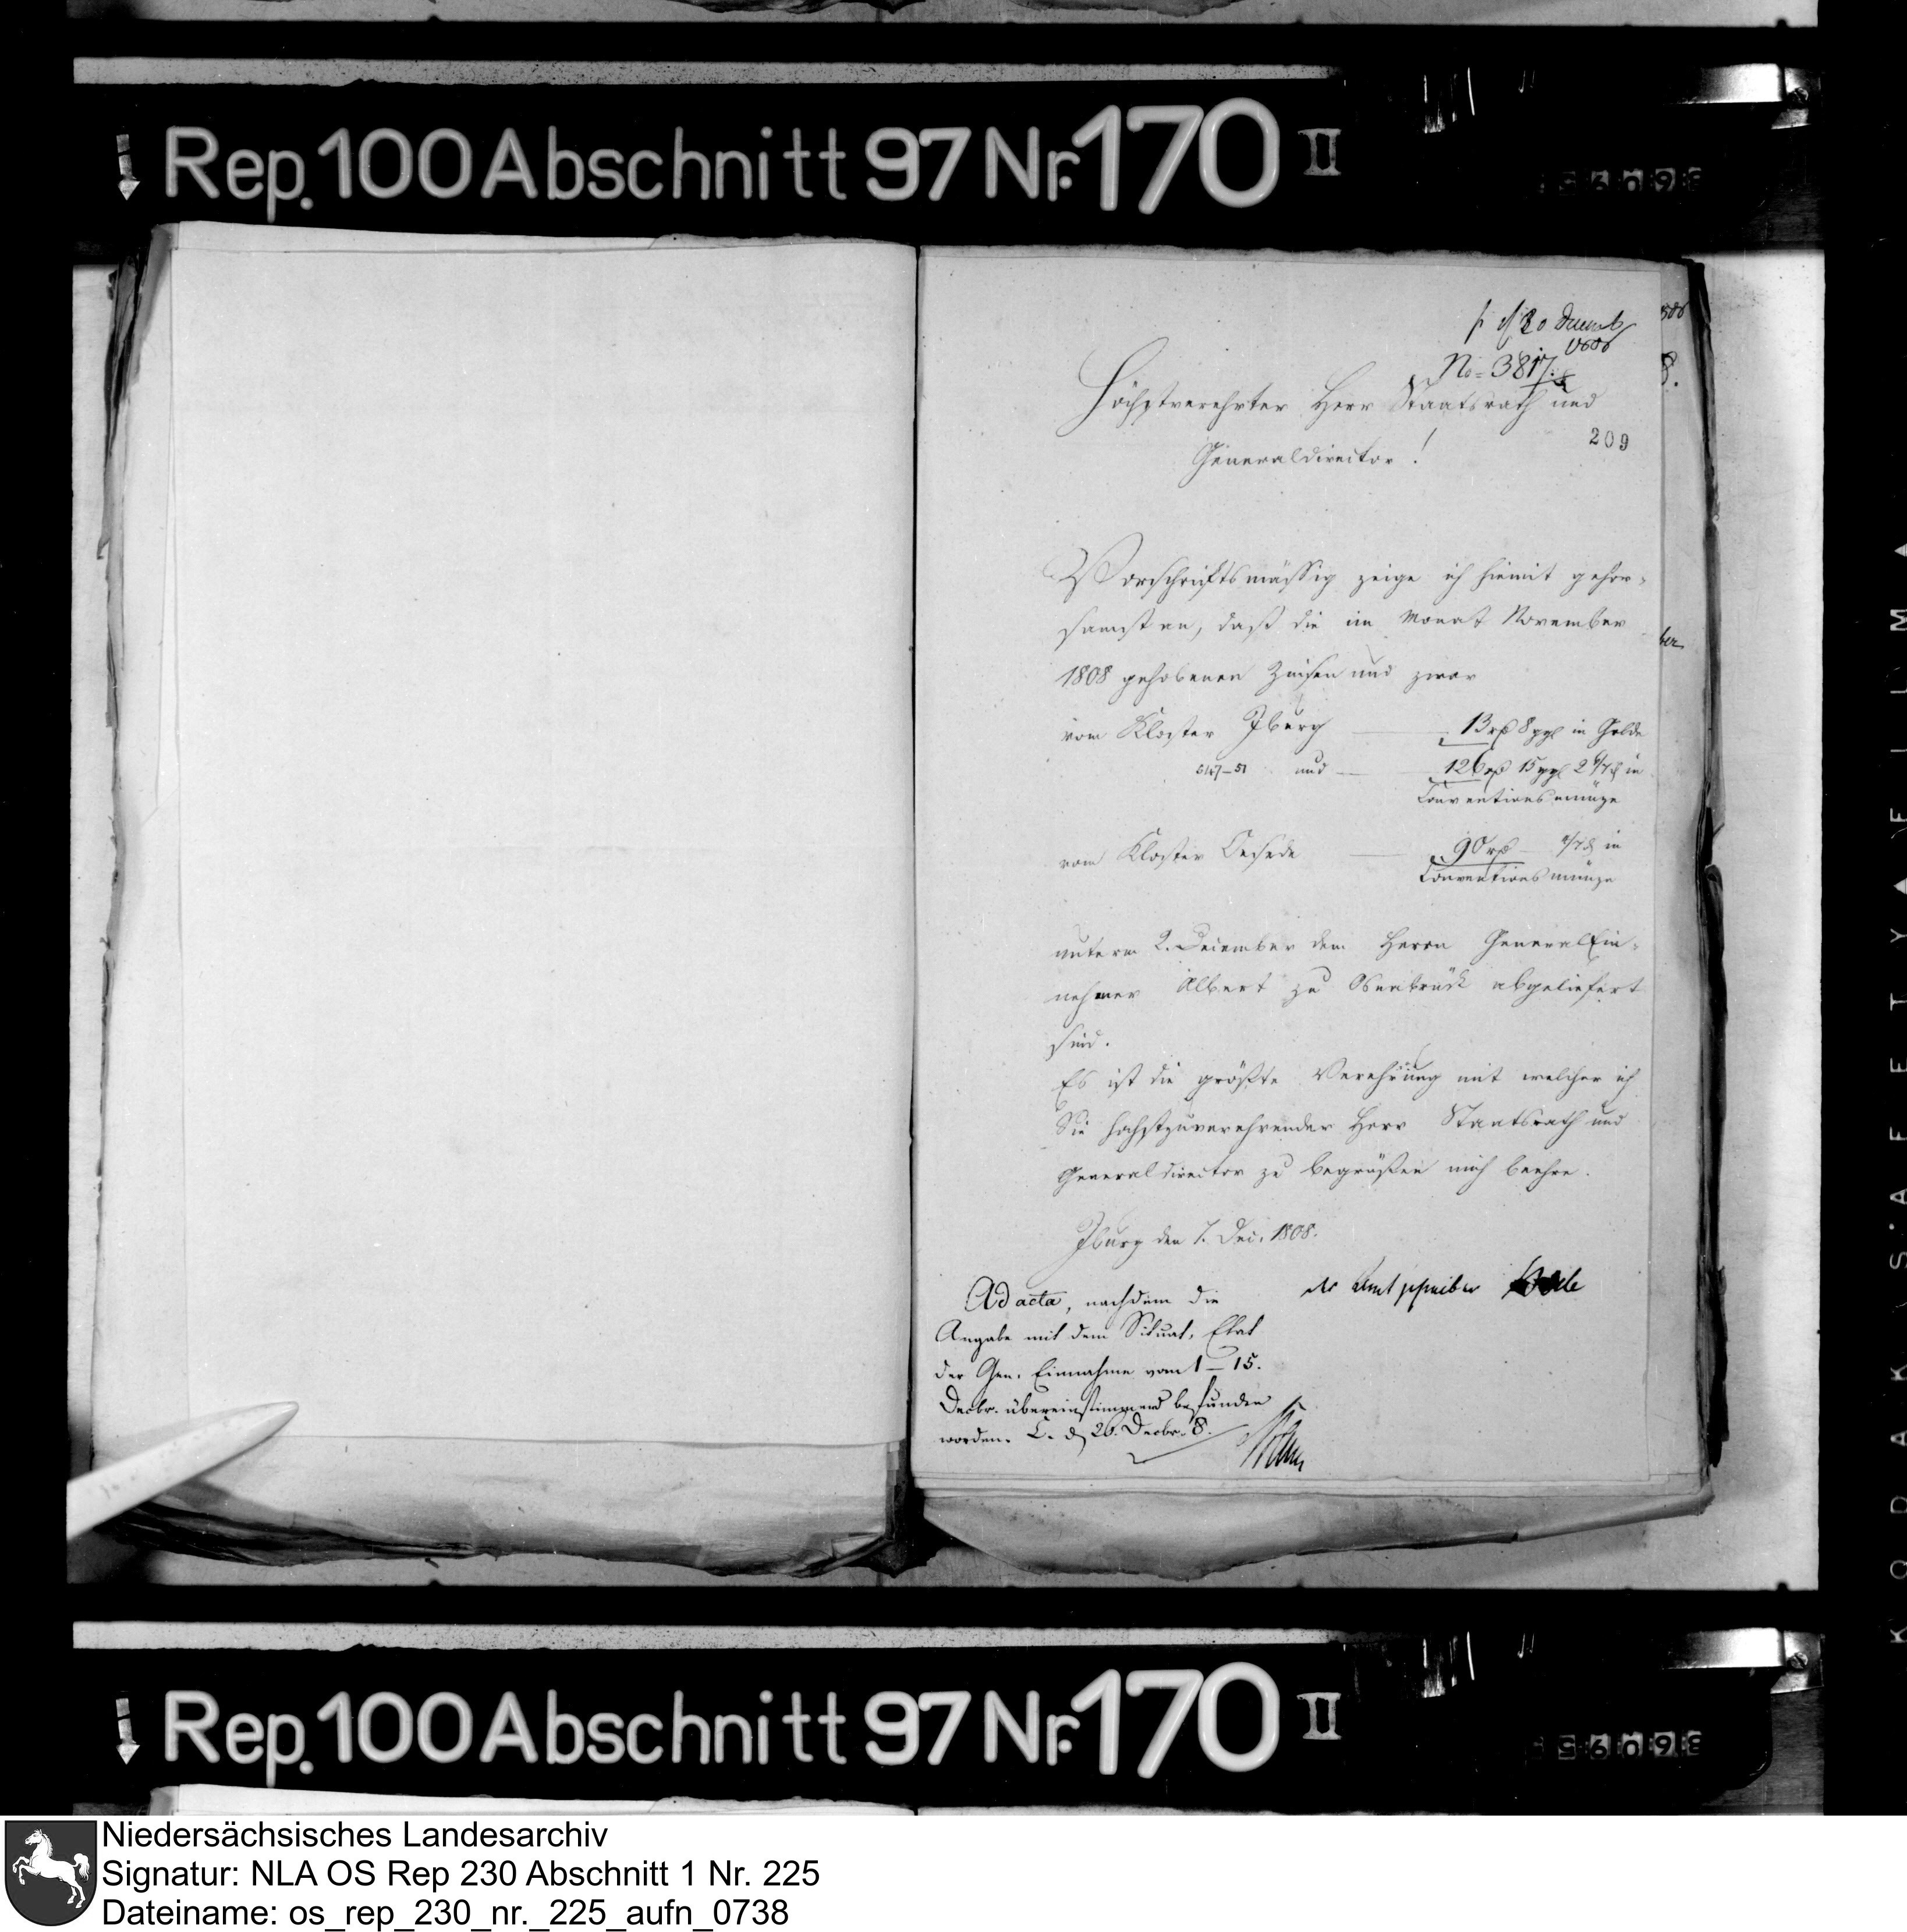 Rep. 100 Abschnitt 97 Nr. 170 II
20 Decemb
1808
No. 3817.
Höchstverehrter Herr Staatsrath und
209
Generaldirector!
Vorschriftsmässig zeige ich hiemit gehor-
samst an, daß die im Monat November
1808 gehobenen Zinsen und zwar
vom Kloster Iburg — 13 rß 8 ggl in Golde
647–51 und — 126 rß 15 ggl 2 6/7 ₰ in
Conventionsmünze
vom Kloster Oesede — 90 rß — 4/7 ₰ in
Conventionsmünze
unterm 2. December dem Herrn GeneralEin-
nehmer Albert zu Osnabrück abgeliefert
sind.
Es ist die größte Verehrung mit welcher ich
Sie hochstzuverehrender Herr Staatsrath und
Generaldirector zu begrüßen mich beehre.
Iburg den 7. Dec. 1808.
der Amtschreiber
Ad acta, nachdem die
Angabe mit dem Situat. Etat
der Gen. Einnahme vom 1–15.
Decbr. übereinstimmend befunden
worden. C. d 20. Decbr. 8.
Rep. 100 Abschnitt 97 Nr. 170 II
KODAK SAFETY FILM
Niedersächsisches Landesarchiv
Signatur: NLA OS Rep 230 Abschnitt 1 Nr. 225
Dateiname: os_rep_230_nr._225_aufn_0738